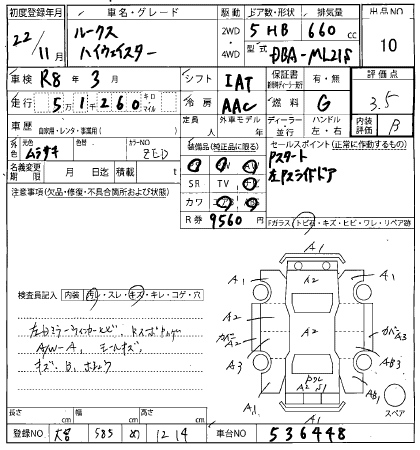 初度登録年月 車名・グレード 駆動 ドア数・形状 排気量 出品NO
22/11月 ルークス ハイウェイスター 2WD 5 HB 660 cc 10
4WD 型式 DBA-ML21S
車検 R8年3月 シフト IAT 保証書 有・無 評価点
走行 51260 キロ・マイル 冷房 AAC 燃料 G 3.5
車歴 自家用・レンタ・事業用( ) 定員 人 外車モデル 年 ディーラー 並行 ハンドル 左・右 内装評価 B
外色 元色 ムラサキ 色替 カラーNO ZED 装備品(純正品に限る) セールスポイント(正常に作動するもの)
名義変更期限 月 日迄 積載 t SR TV Pスタート
左Pスライドドア
注意事項(欠品・修復・不具合箇所および状態) カワ
R券 9560円 Fガラス(トビ石・キズ・ヒビ・ワレ・リペア跡)
A1
A1 A2 A1
検査員記入 内装 汚レ・スレ・キズ・キレ・コゲ・穴
A2 A2 カバーA3
A/W-A、モールキズ、
A3 AB3
キズ、B、
A2 S
A1 AB1
A1 スペア
長さ cm 幅 cm 高さ cm
登録NO 585 め 1214 車台NO 536448